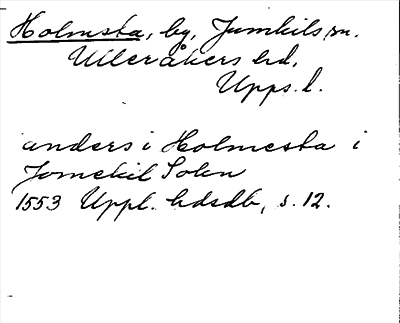 Holmsta, by, Jumkils sn.
Ulleråkers hd.
Upps. l.
anders i Holmesta i
Jomekil Sokn
1553 Uppl. hdsdb, s. 12.